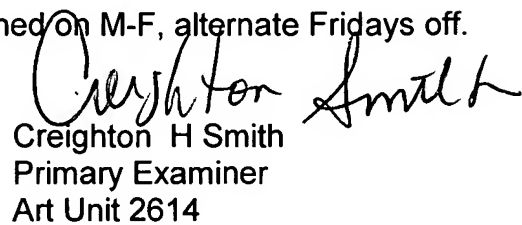 ned on M-F, alternate Fridays off.
Creighton Smith
Creighton H Smith
Primary Examiner
Art Unit 2614